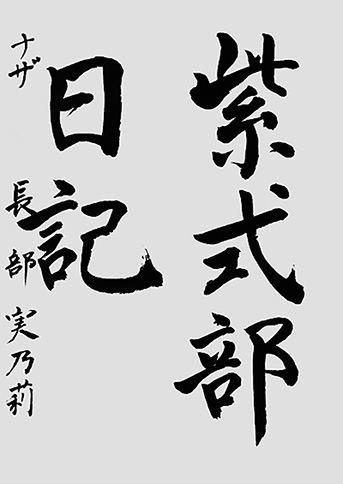 紫式部
日記
ナザ 長部実乃莉